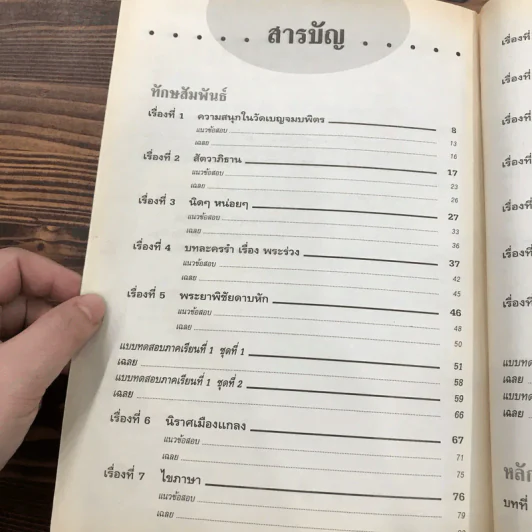 สารบัญ
ทักษสัมพันธ์
เรื่องที่ 1 ความสนุกในวัดเบญจมบพิตร 8
แนวข้อสอบ 13
เฉลย 16
เรื่องที่ 2 สัตวาภิธาน 17
แนวข้อสอบ 23
เฉลย 26
เรื่องที่ 3 นิดๆ หน่อยๆ 27
แนวข้อสอบ 33
เฉลย 36
เรื่องที่ 4 บทละครรำ เรื่อง พระร่วง 37
แนวข้อสอบ 42
เฉลย 45
เรื่องที่ 5 พระยาพิชัยดาบหัก 46
แนวข้อสอบ 48
เฉลย 50
แบบทดสอบภาคเรียนที่ 1 ชุดที่ 1 51
เฉลย 58
แบบทดสอบภาคเรียนที่ 1 ชุดที่ 2 59
เฉลย 66
เรื่องที่ 6 นิราศเมืองแกลง 67
แนวข้อสอบ 71
เฉลย 75
เรื่องที่ 7 ไขภาษา 76
แนวข้อสอบ 79
เฉลย
เรื่องที่
เรื่องที่
เรื่องที่
เรื่องที่
เรื่องที่
เรื่องที่
เรื่องที่
เฉลย
เฉลย
บทที่